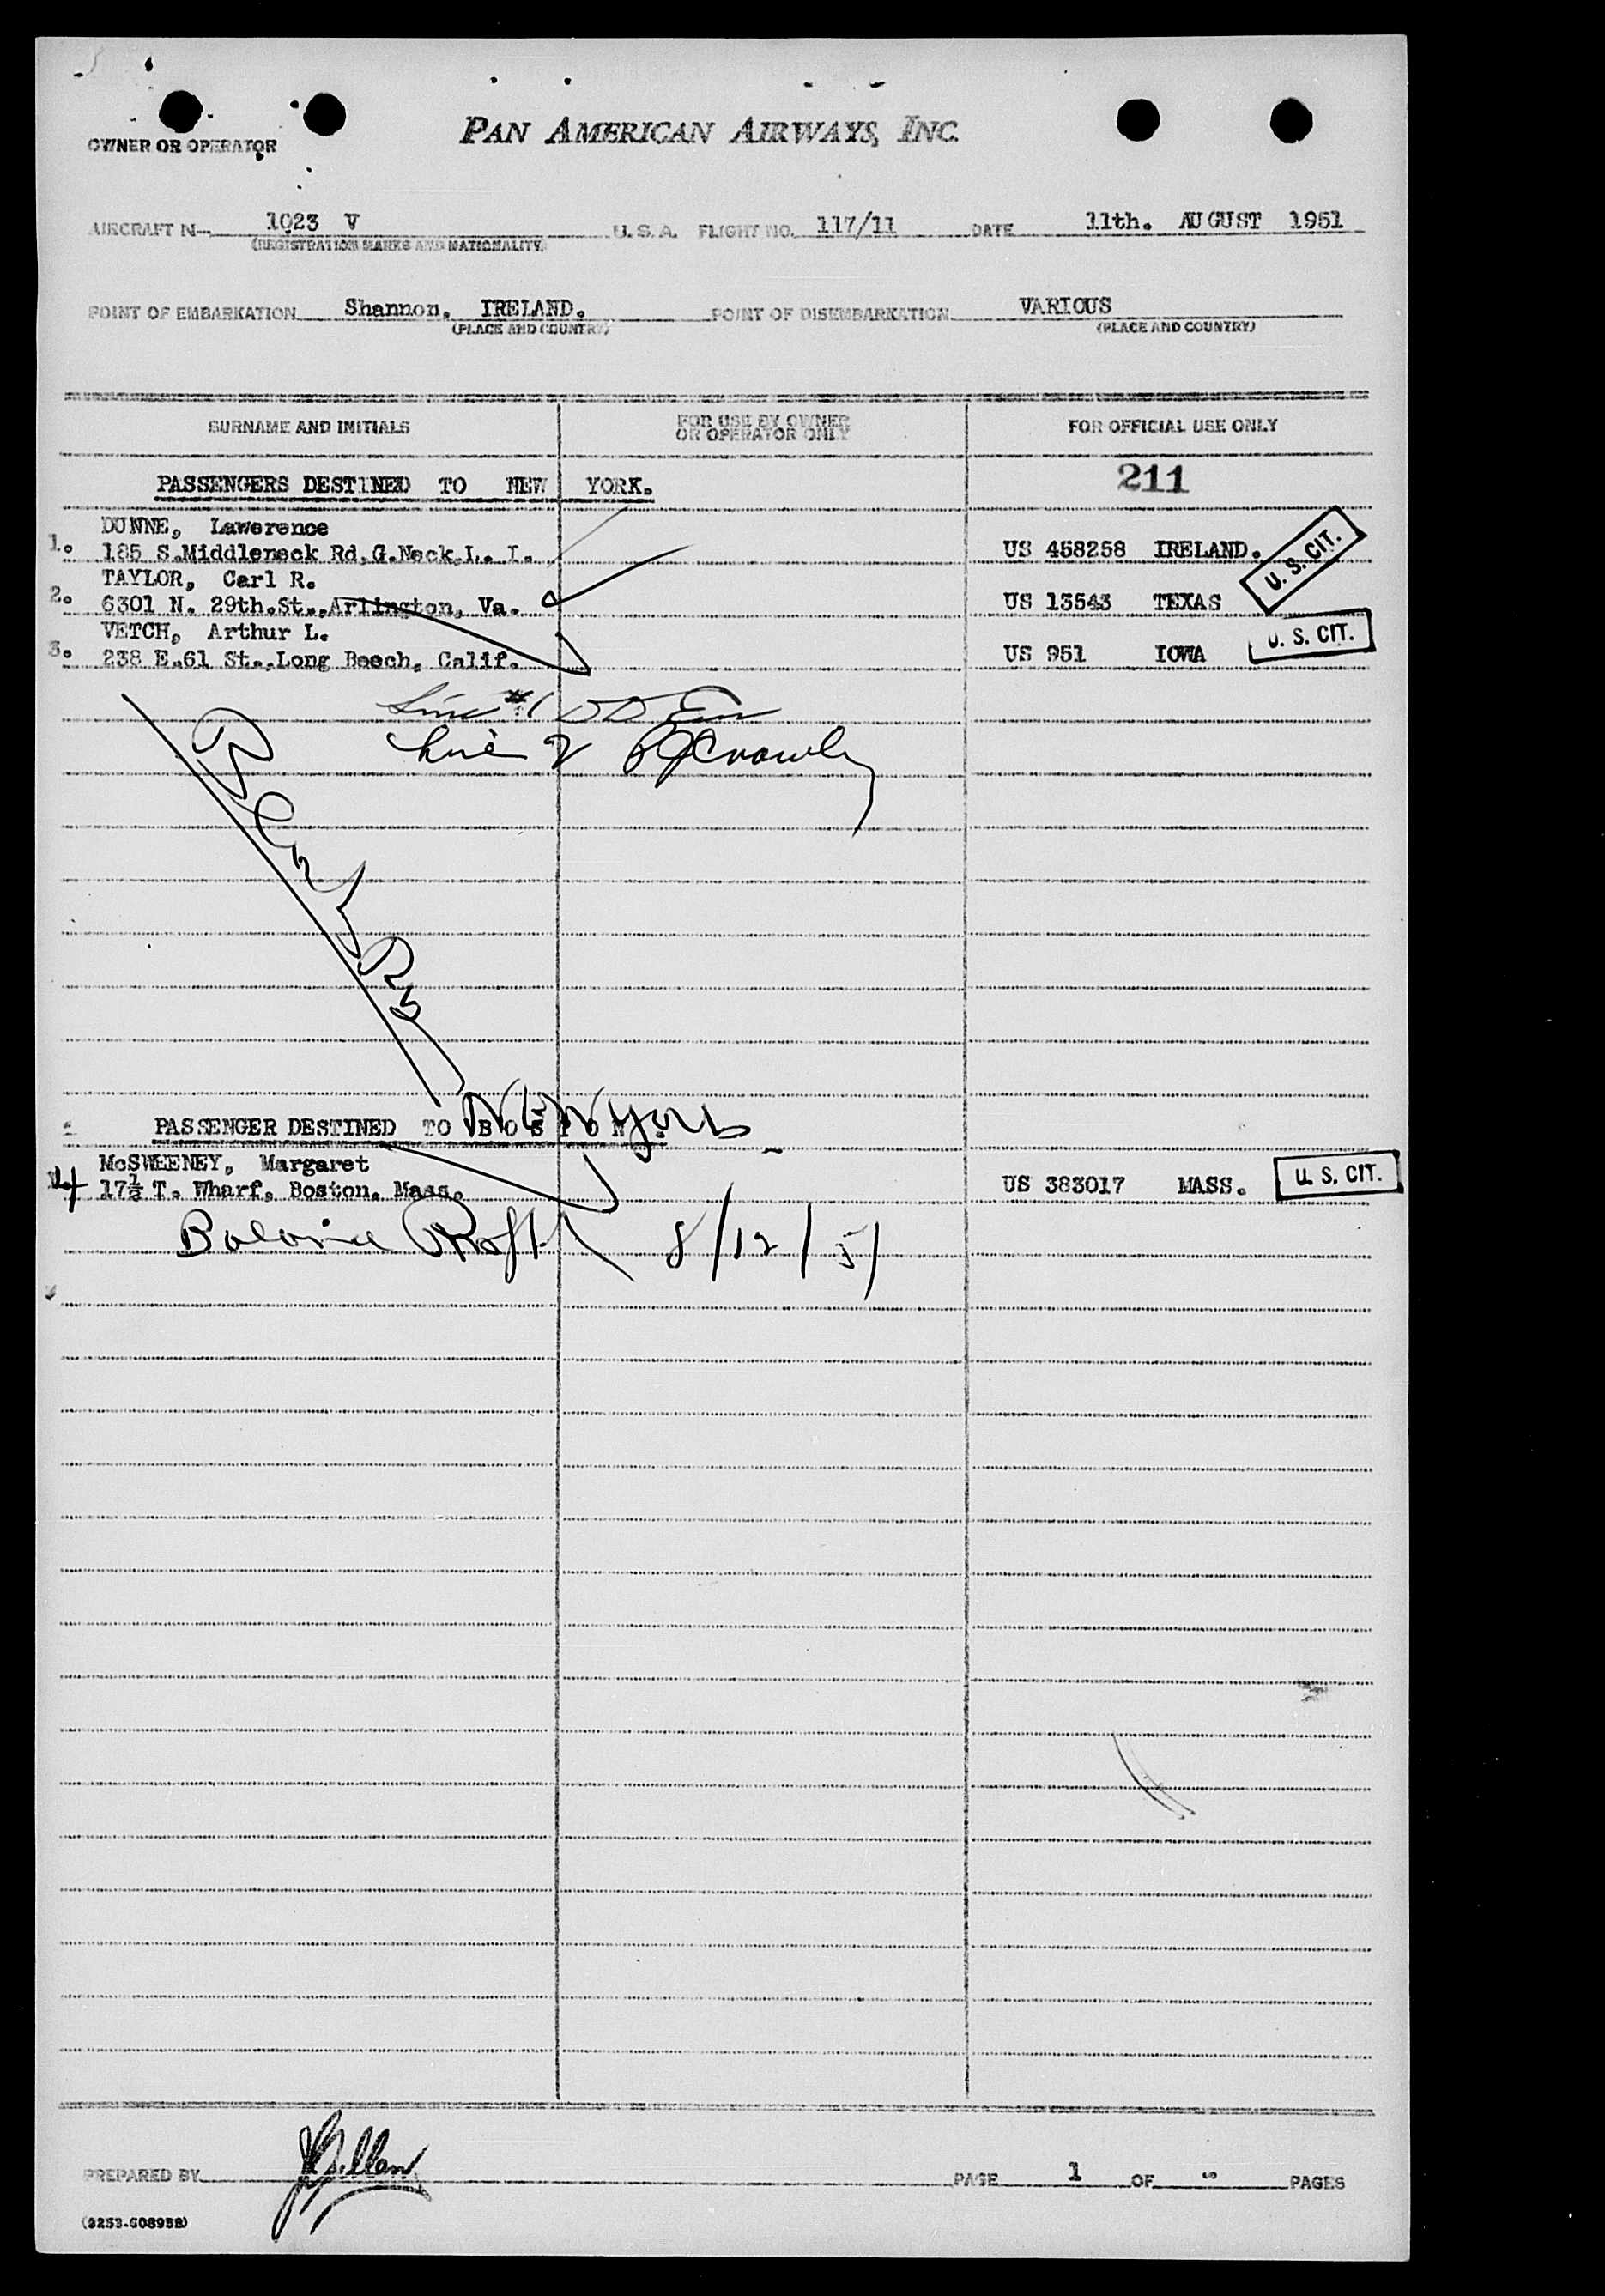 PAN AMERICAN AIRWAYS, INC.
OWNER OR OPERATOR
AIRCRAFT N- 1023 V U. S. A. FLIGHT NO. 117/11 DATE 11th. AUGUST 1951
(REGISTRATION MARKS AND NATIONALITY)
POINT OF EMBARKATION Shannon. IRELAND. POINT OF DISEMBARKATION VARIOUS
(PLACE AND COUNTRY) (PLACE AND COUNTRY)
SURNAME AND INITIALS FOR USE BY OWNER OR OPERATOR ONLY FOR OFFICIAL USE ONLY
PASSENGERS DESTINED TO NEW YORK. 211
DUNNE, Lawerence
1. 185 S.Middleneck Rd.G.Neck.L. I. US 458258 IRELAND. U. S. CIT.
TAYLOR, Carl R.
2. 6301 N. 29th.St.,Arlington, Va. US 13543 TEXAS
VETCH, Arthur L.
3. 238 E.61 St.,Long Beach, Calif. US 951 IOWA U. S. CIT.
Line #1
Line 2
PASSENGER DESTINED TO BOSTON.
McSWEENEY, Margaret
4 17½ T. Wharf, Boston. Mass. US 383017 MASS. U. S. CIT.
8/12/51
PREPARED BY PAGE 1 OF PAGES
(3253-608958)